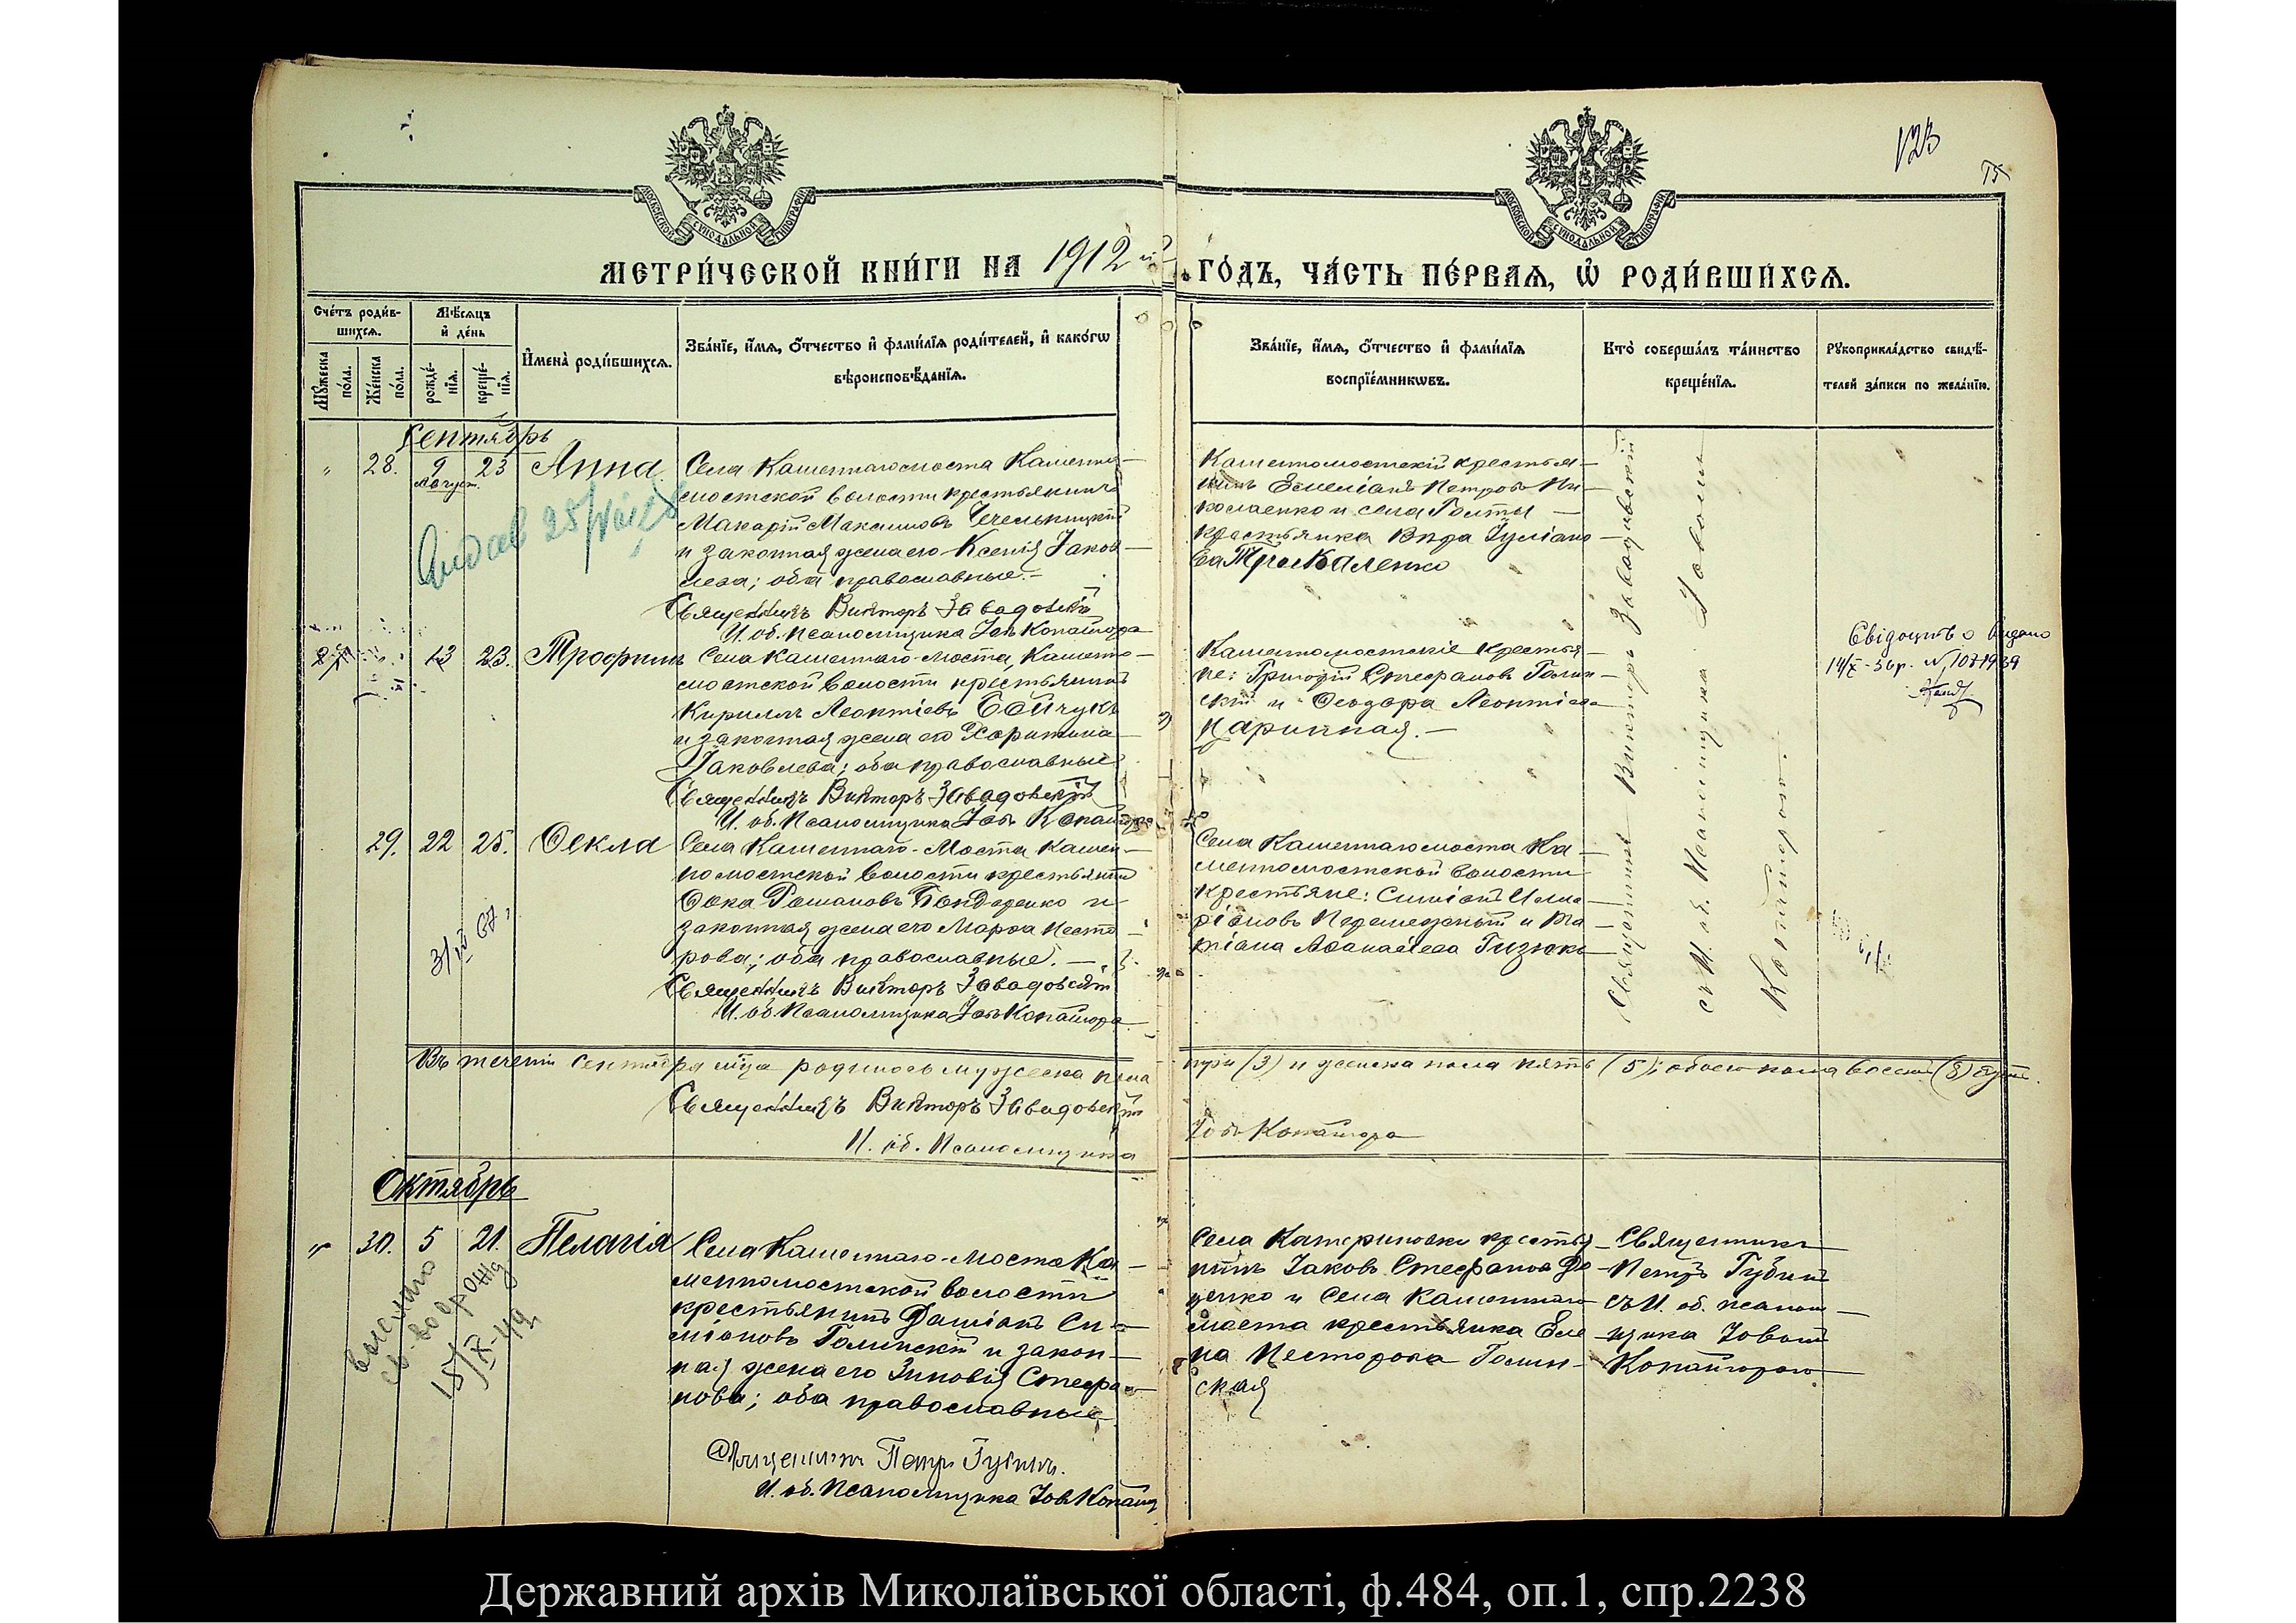 123
75
МОСКОВСКОЙ СѴНОДАЛЬНОЙ ТИПОГРАФІИ
МОСКОВСКОЙ СѴНОДАЛЬНОЙ ТИПОГРАФІИ
МЕТРИ́ЧЕСКОЙ КНИ́ГИ НА 1912 й ГО́ДЪ, ЧА́СТЬ ПЕ́РВАѦ, Ѡ҆ РОДИ́ВШИХСѦ.
Сче́тъ роди́в-
шихсѧ.
Мꙋжеска по́ла.
Же́нска по́ла.
Мѣ́сѧцъ
и҆ де́нь
рожде́-
нїѧ.
креще́-
нїѧ.
И҆мена̀ роди́вшихсѧ.
Зва́нїе, и҆́мѧ, ѻ҆́тчество и҆ фами́лїѧ роди́телей, и҆ како́гѡ
вѣроисповѣ́данїѧ.
Зва́нїе, и҆́мѧ, ѻ҆́тчество и҆ фами́лїѧ
воспрїе́мникѡвъ.
Кто̀ соверша́лъ та́инство
креще́нїѧ.
Рꙋкоприкла́дство свидѣ́-
телей за́писи по жела́нїю.
Сентябрь
" 28. 9 23 Анна
Август.
Села Каменнагомоста Каменно-
мостской волости крестьянинъ
Макарій Максимовъ Чечельницкій
и законная жена его Ксенія Іаков-
лева; оба православные.-
Священникъ Викторъ Завадовскій
И. об. псаломщика Іовъ Копайгора
Каменномостскій крестья-
нинъ Емеліанъ Петровъ Ни-
колаенко и села Голты
крестьянка Вѣра Іуліано-
ва Москаленко
Видав 25
27 13 23. Трофимъ
Села Каменнаго-Моста, Каменно-
мостской волости крестьянинъ
Кириллъ Леонтіевъ Бойчукъ
и законная жена его Харитина
Іаковлева; оба православные
Священникъ Викторъ Завадовскій
И. об. Псаломщика Іовъ Копайгора
Каменномостскіе крестья-
не: Григорій Стефановъ Голин-
скій и Ѳеодора Леонтіева
Царинная.-
Свідоцтво видано
14/X-36р. №1071939
29. 22 25. Ѳекла
Села Каменнаго-Моста Камен-
номостской волости крестьянинъ
Ѳока Романовъ Бондаренко и
законная жена его Марѳа Несто-
рова; оба православные.-
Священникъ Викторъ Завадовскій
И. об. Псаломщика Іовъ Копайгора
Села Каменнагомоста Ка-
менномостской волости
крестьяне: Симеонъ Илла-
ріоновъ и Та-
тіана Аѳанасіева Гизюкъ
3/IV 67,
Священникъ Викторъ Завадовскій
съ И. об. Псаломщика Іовомъ
Копайгорою.
Въ теченіи сентября мѣсяца родилось мужеска пола три (3) и женска пола пять (5); обоего пола восемь (8) душъ.
Священникъ Викторъ Завадовскій
И. об. Псаломщика Іовъ Копайгора
Октябрь
" 30. 5 21. Пелагія
Села Каменнаго-Моста Ка-
менномостской волости
крестьянинъ Даміанъ Си-
меоновъ Голинскій и закон-
ная жена его Зиновія Стефа-
нова; оба православные
Священникъ Петръ Губинъ.
И. об. Псаломщика Іовъ Копайг
Села Катериновки крестья-
нинъ Іаковъ Стефановъ Де-
ценко и села Каменнаго
моста крестьянка Еле-
на Несторова Голин-
ская
Священникъ
Петръ Губинъ
съ И. об. псалом-
щика Іовомъ
Копайгорою
выслано
св-во о рожд
15/IX-49
Державний архів Миколаївської області, ф.484, оп.1, спр.2238